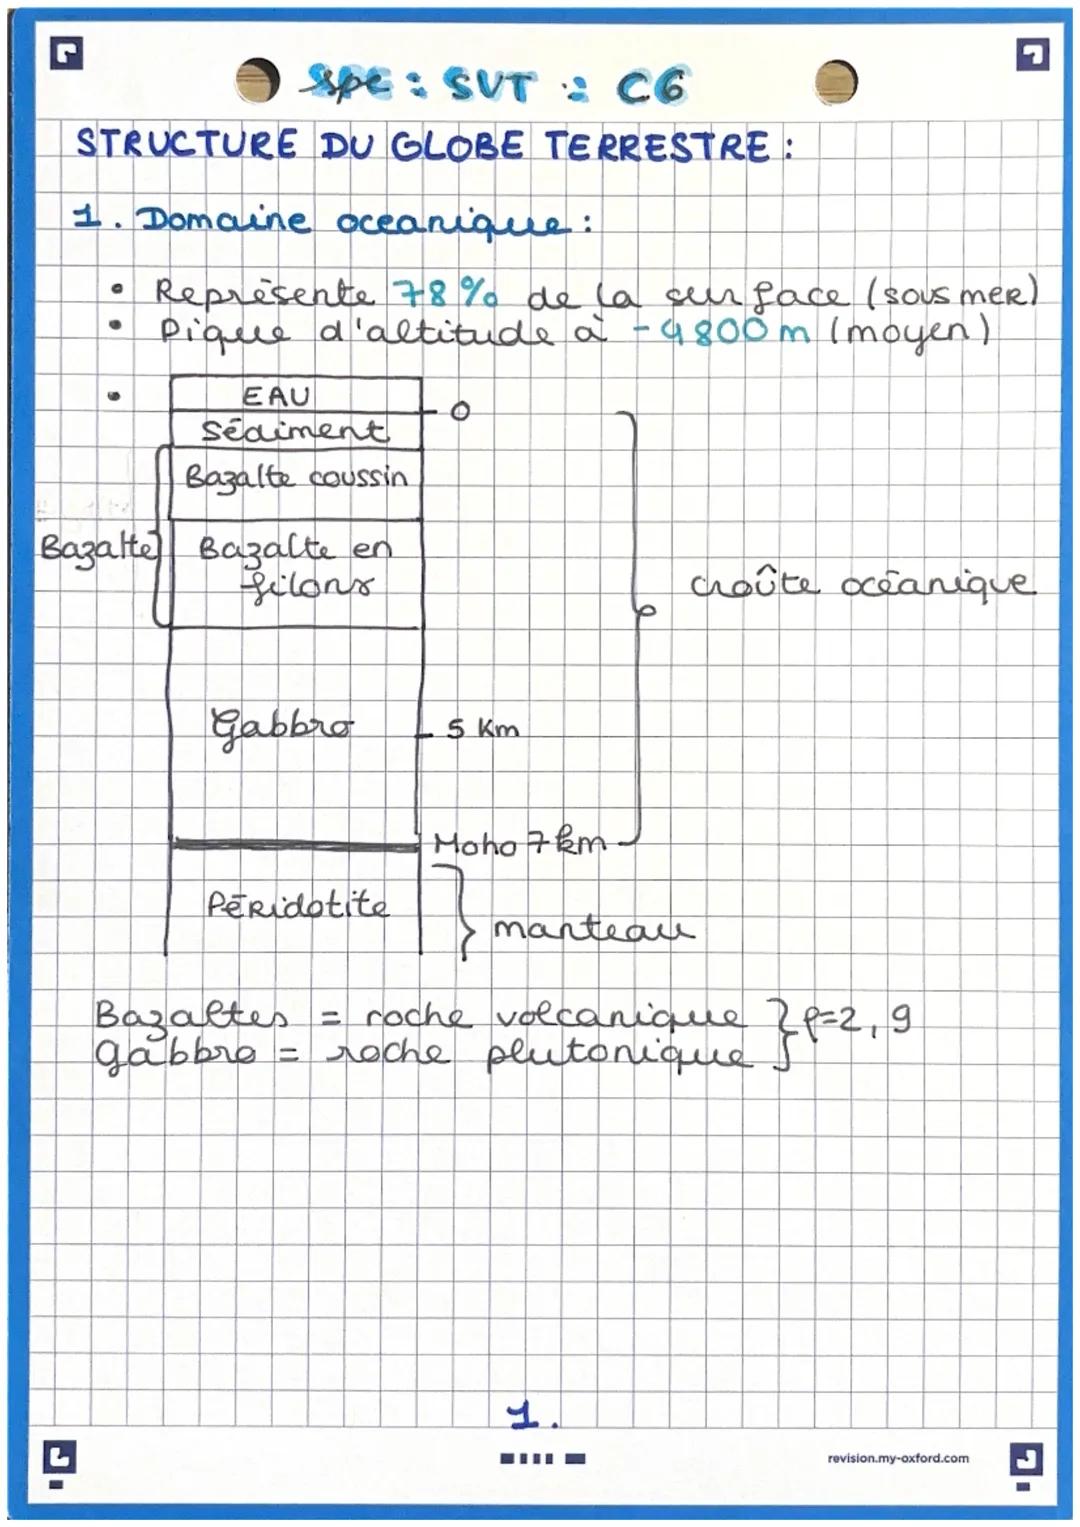 spe : SVT : C6
STRUCTURE DU GLOBE TERRESTRE :
1. Domaine oceanique :
• Représente 78% de la surface (sous mer)
• Pique d'altitude à -4800m (moyen)
• EAU
0
Sédiment
Bazalte coussin
Bazalte
Bazalte en
filons
croûte océanique
Gabbro
5 Km
Moho 7 km
Péridotite
manteau
Bazaltes = roche volcanique } ρ=2,9
gabbro = roche plutonique
1.
revision.my-oxford.com